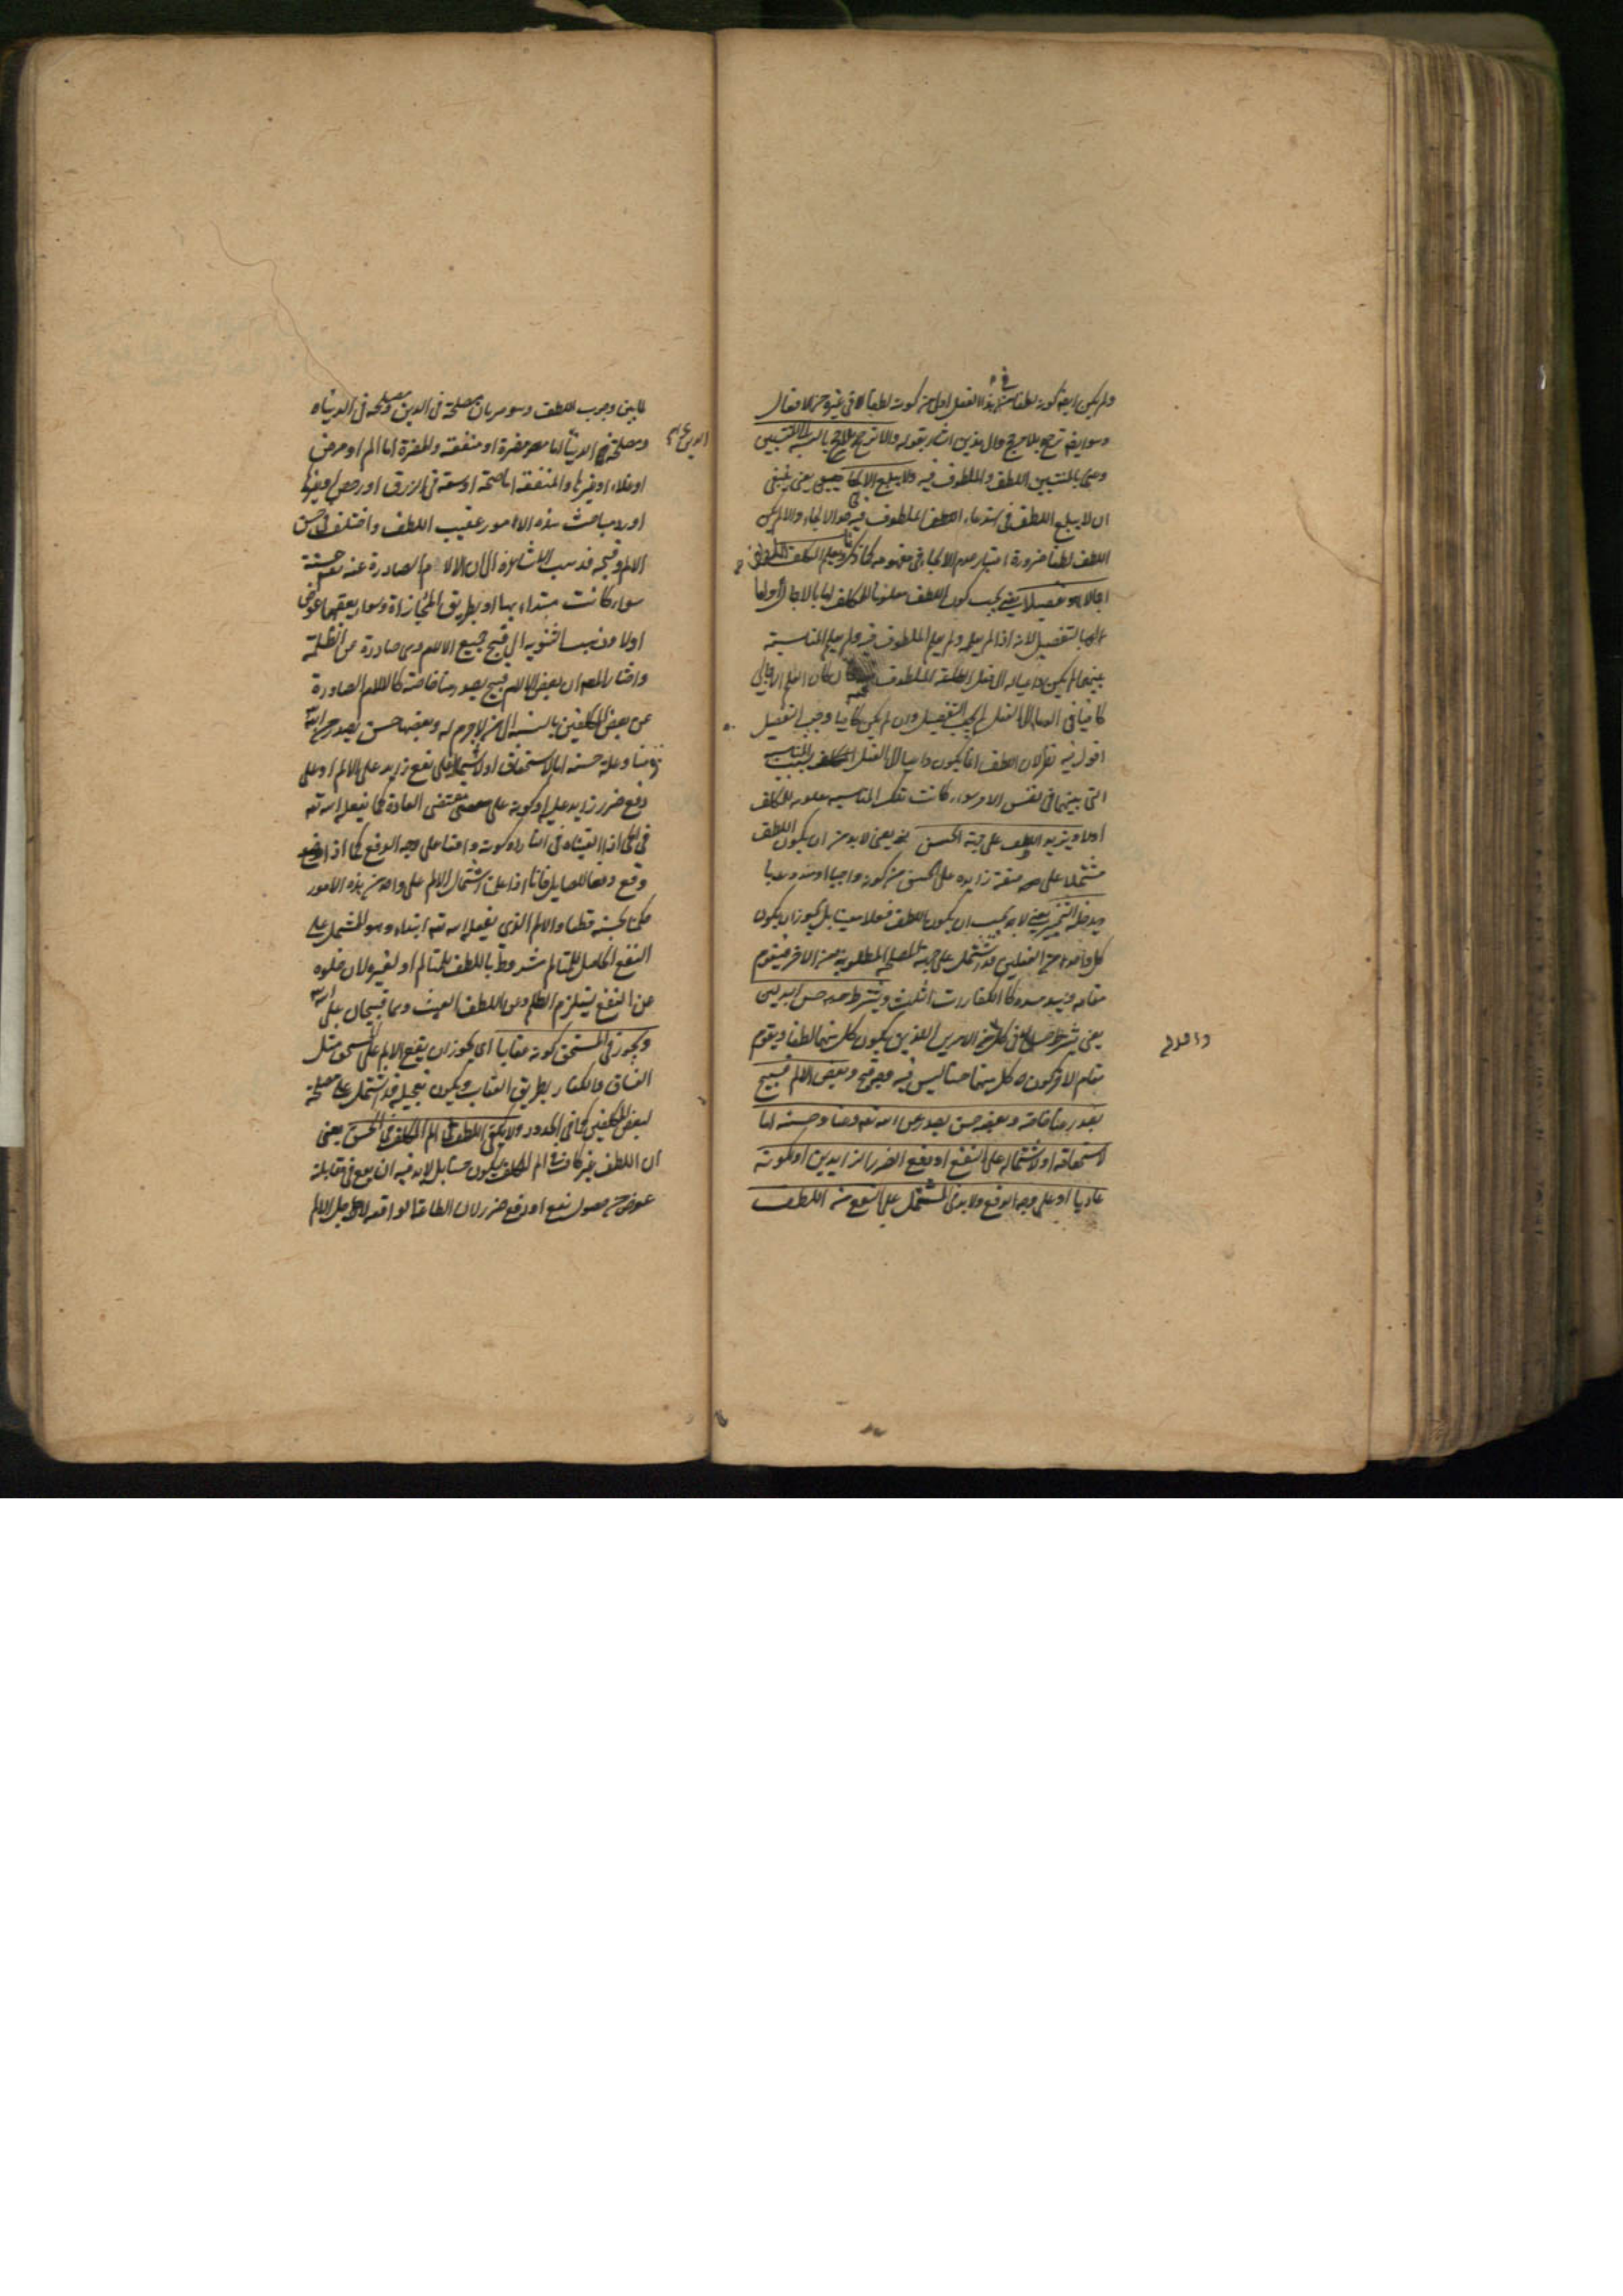 ولم يكن ايضا كونه لطفا في هذا الفعل اولى من كونه لطفا في غيره من الافعال
وهو ايضا ترجيح بلا مرجح والى هذين اشار بقوله والا ترجح بلا مرجح بالنسبة الى المنتسبين
وعنى بالمنتسبين اللطف والملطوف فيه ولا يبلغ الالجاء يعنى ينبغى
ان لا يبلغ اللطف في استدعاء الملطوف فيه حد الالجاء والا لم يكن
اللطف لطفا ضرورة اعتبار عدم الالجاء في مفهومه كما ذكرنا ويعلم المكلف اللطف
اجمالا او تفصيلا يعنى يجب كون اللطف معلوما للمكلف اما بالاجمال او
بالتفصيل لانه اذا لم يعلمه ولم يعلم الملطوف فيه ولم يعلم المناسبة
بينهما لم يكن داعيا له الى فعل الملطوف فيه فان كان العلم الاجمالي
كافيا في الدعاء الى الفعل لم يجب التفصيل وان لم يكن كافيا وجب التفصيل
اقول فيه نظر لان اللطف انما يكون داعيا الى الفعل بسبب المناسبة
التى بينهما في نفس الامر سواء كانت تلك المناسبة معلومة للمكلف
اولا ويزيد اللطف على جهة الحسن يعنى لا بد من ان يكون اللطف
مشتملا على صفة زايدة على الحسن من كونه واجبا او مندوبا
ويدخله التخيير يعنى لا يجب ان يكون اللطف فعلا معينا بل يجوز ان يكون
كل واحد من الفعلين قد اشتمل على جهة المصلحة المطلوبة من الاخر فيقوم
مقامه ويسد مسده كالكفارات الثلث ويشترط حسن البدلين
يعنى يشترط في كل من الامرين اللذين يكون كل منهما لطفا ويقوم
مقام الاخر كون كل منهما حسنا ليس فيه وجه قبح وبعض الالم قبيح
يصدر منا خاصة وبعضه حسن يصدر من الله تعه ومنا وحسنه اما
لاستحقاقه او لاشتماله على النفع او دفع الضرر الزايدين او لكونه
عاديا او على وجه الدفع ولا بد في المشتمل على النفع من اللطف
لما بين وجوب اللطف وهو ضربان مصلحة في الدين ومصلحة في الدنيا
ومصلحة الدنيا اما مضرة او منفعة والمضرة اما الم او مرض
او غلاء او غيرها والمنفعة اما صحة او سعة في الرزق او رخص او غيرها
اورد مباحث هذه الامور عقيب اللطف واختلف في حسن
الالم وقبحه فذهب الاشاعرة الى ان الالام الصادرة عنه تعه حسنة
سواء كانت مبتداء بها او بطريق المجازاة وسواء يعقبها عوض
اولا وذهب الثنوية الى قبح جميع الالام وهى صادرة من الظلمة
واختار المصه ان بعض الالام قبيح يصدر منا خاصة كالالام الصادرة
عن بعض المكلفين بالنسبة الى من لا جرم له وبعضها حسن يصدر من الله
ومنا وعلة حسنه اما الاستحقاق او لاشتماله على نفع زايد على الالم او على
دفع ضرر زايد عليه او كونه على مقتضى العادة كما يفعله الله تعه
في الحى اذا القيناه في النار او كونه واقعا على وجه الدفع كما اذا
وقع دفعا للصايل فانا اذا علمنا اشتمال الالم على واحد من هذه الامور
حكمنا بحسنه قطعا والالم الذى يفعله الله تعه ابتداء وهو المشتمل على
النفع الحاصل للمتالم مشروط باللطف للمتالم او لغيره لان خلوه
عن النفع يستلزم الظلم وعن اللطف العبث وهما قبيحان على الله
ويجوز في المستحق كونه عقابا اى يجوز ان يقع الالم على المستحق مثل
الفساق والكفار بطريق العقاب ويكون تعجيله قد اشتمل على مصلحة
لبعض المكلفين كما في الحدود ولا يكفى اللطف في الم المكلف في الحسن يعنى
ان اللطف غير كاف في الم المكلف ليكون حسنا بل لا بد فيه ان يقع في مقابلة
عوض من حصول نفع او دفع ضرر لان الطاعة الواقعة لاجل الالم